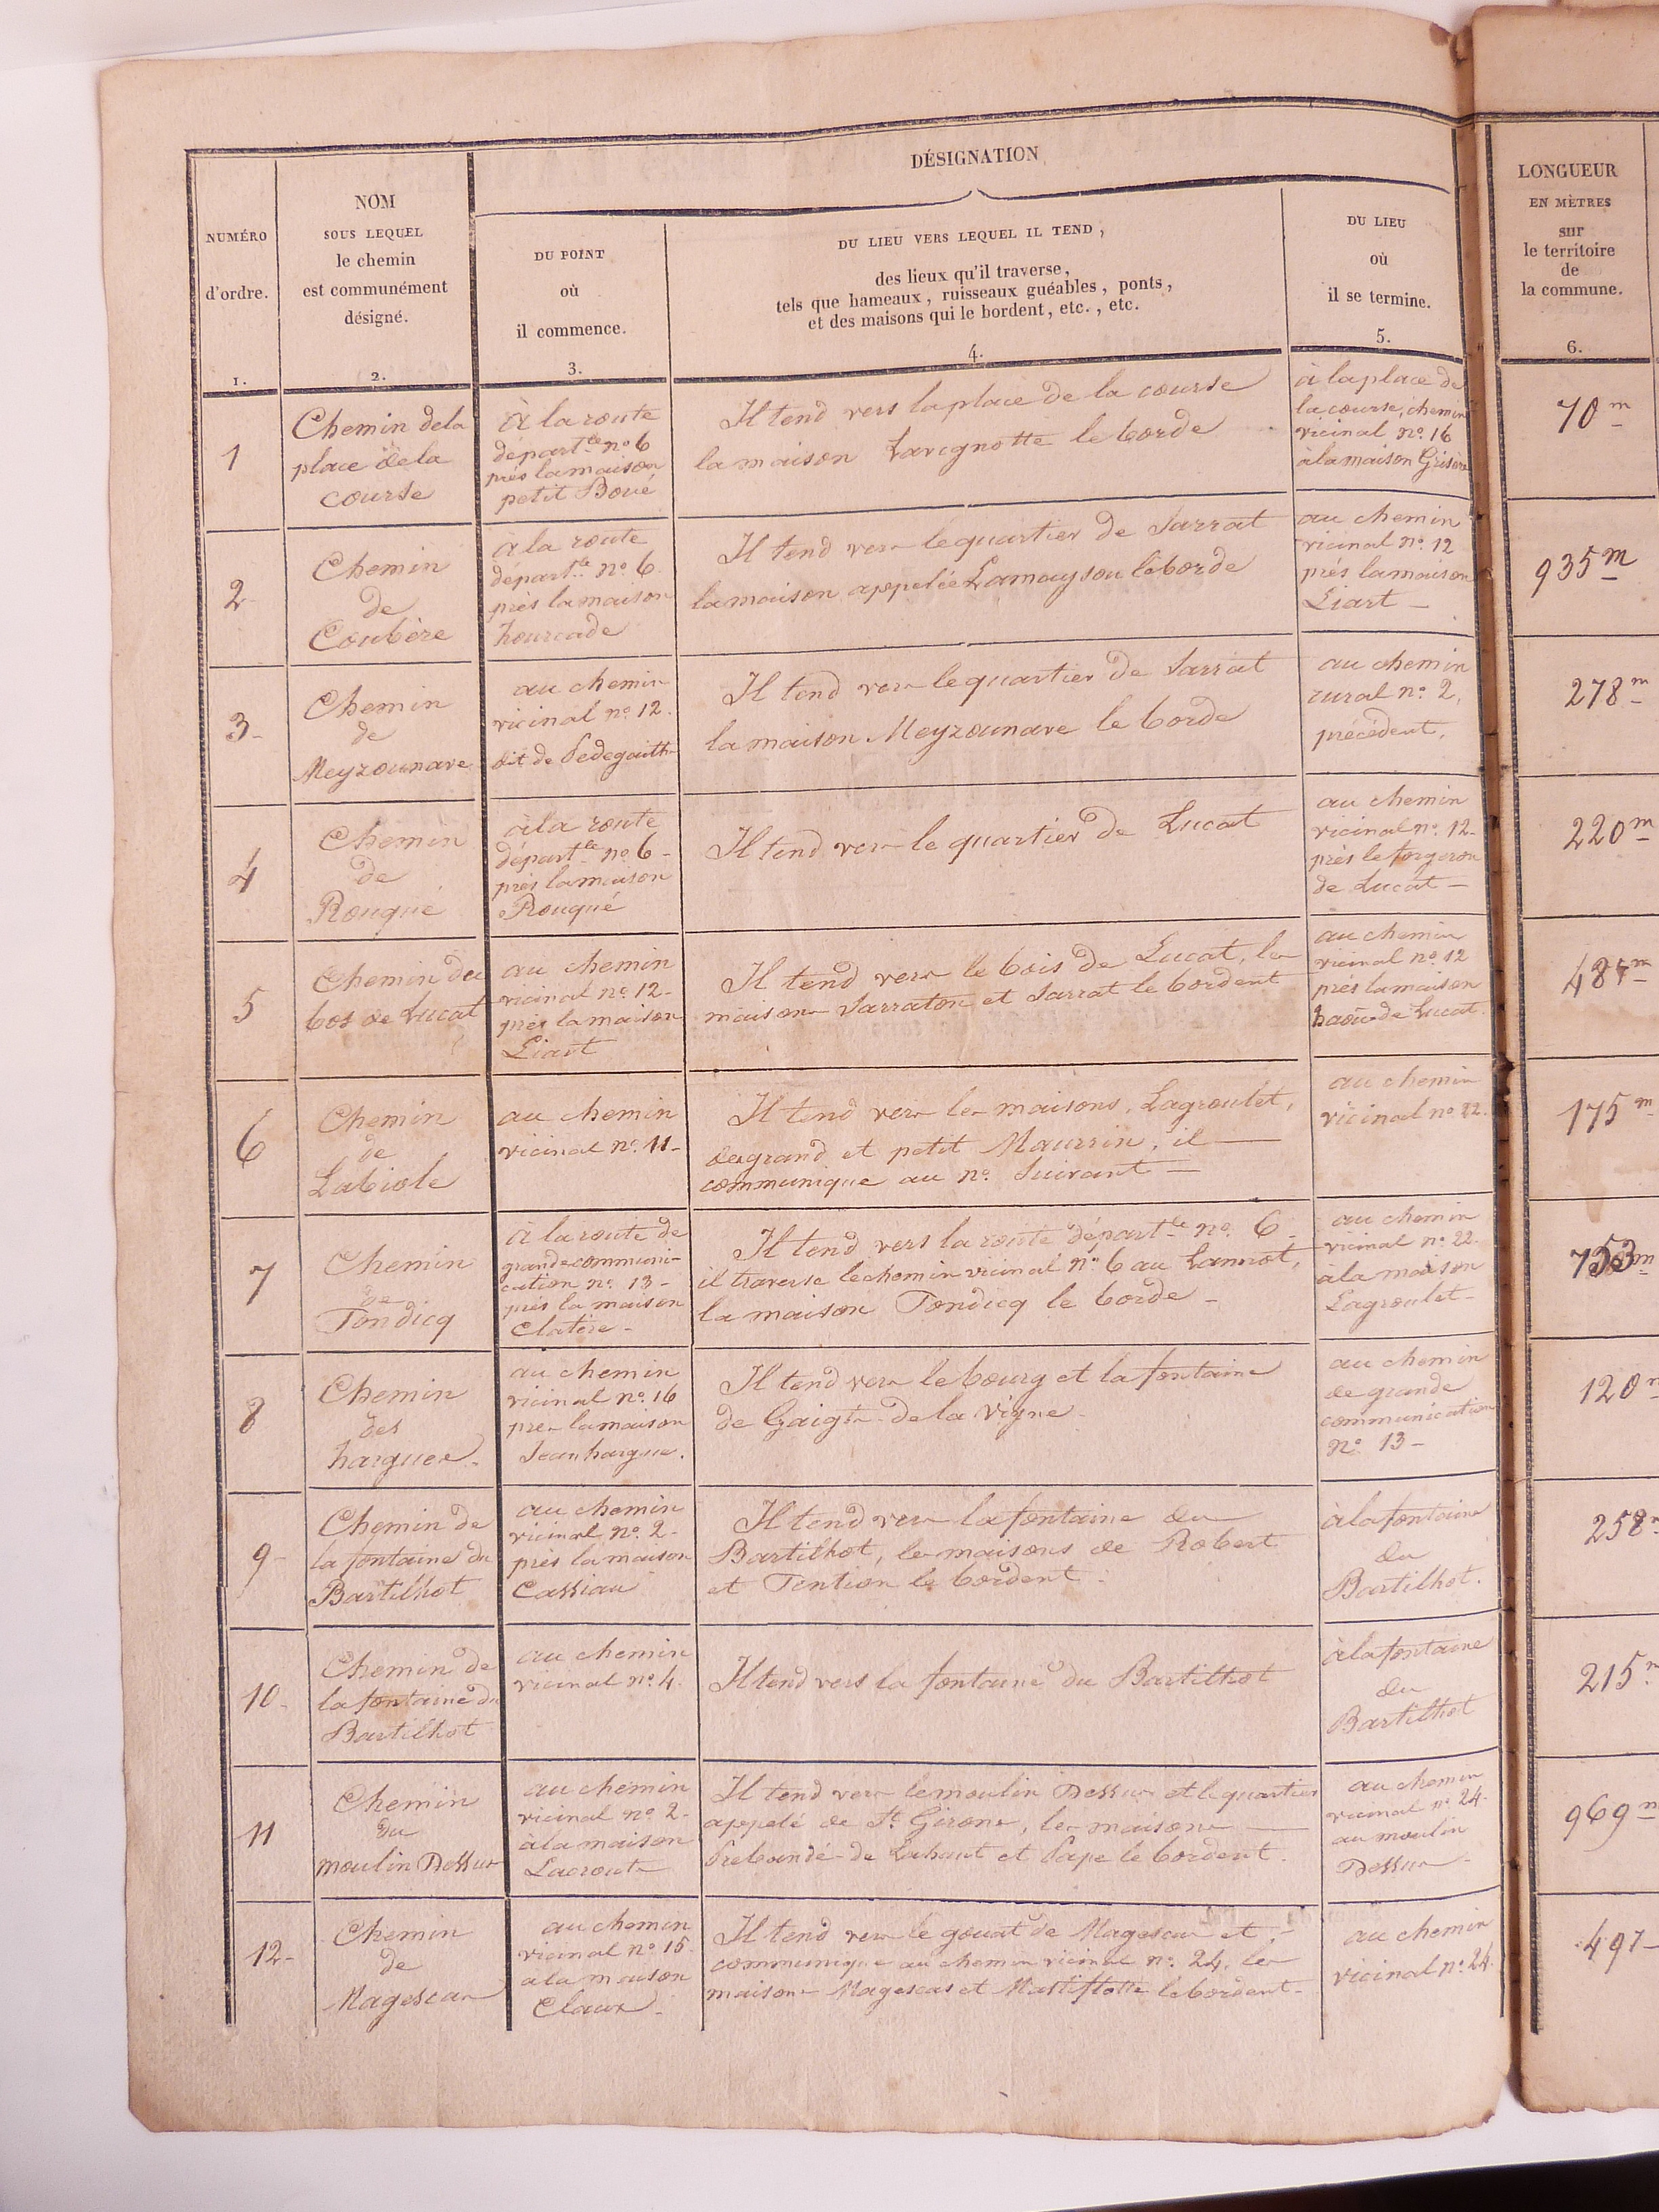 DÉSIGNATION
NUMÉRO
d'ordre.
1.
NOM
SOUS LEQUEL
le chemin
est communément
désigné.
2.
DU POINT
où
il commence.
3.
DU LIEU VERS LEQUEL IL TEND,
des lieux qu'il traverse,
tels que hameaux, ruisseaux guéables, ponts,
et des maisons qui le bordent, etc., etc.
4.
DU LIEU
où
il se termine.
5.
LONGUEUR
EN MÈTRES
sur
le territoire
de
la commune.
6.
1
Chemin dela
place de la
course
à la route
départ.le no 6
près la maison
petit Boué
Il tend vers la place de la course
la maison Lavignotte le borde
à la place de
la course, chemin
vicinal no. 16
à la maison
70 m
2
Chemin
de
Coubère
à la route
départ.le no. 6
près la maison
hourcade
Il tend vers le quartier de Sarrat
la maison appelée Lamaysou le borde
au chemin
vicinal no. 12
près la maison
Liart
935 m
3
Chemin
de
Meyzounave
au chemin
vicinal no. 12.
dit de
Il tend vers le quartier de Sarrat
la maison Meyzounave le borde
au chemin
rural no. 2,
précédent.
278 m
4
Chemin
de
Rouqué
à la route
départ.le no 6
près la maison
Rouqué
Il tend vers le quartier de Lucat
au chemin
vicinal no. 12
près le forgeron
de Lucat
220 m
5
Chemin du
bos de Lucat
au chemin
vicinal no. 12
près la maison
Liart
Il tend vers le bois de Lucat, les
maisons Sarraton et Sarrat le bordent
au chemin
vicinal no. 12
près la maison
de Lucat
m
6
Chemin
de
Labiole
au chemin
vicinal no. 11
Il tend vers les maisons, Lagroulet,
de grand et petit Maurrin, il
communique au no. Suivant
au chemin
vicinal no 22.
175 m
7
Chemin
de
Tondicq
à la route de
grande communi-
cation no. 13
près la maison
Il tend vers la route départ.le no. 6
il traverse le chemin vicinal no. 6 au Lannot,
la maison Tondicq le borde
au chemin
vicinal no. 22.
à la maison
Lagroulet
753 m
8
Chemin
des
hargues
au chemin
vicinal no. 16
près la maison
Jean hargue.
Il tend vers le bourg et la fontaine
de de la Vigne
au chemin
de grande
communication
no. 13
120 m
9
Chemin de
la fontaine du
Bartilhot
au chemin
vicinal no. 2
près la maison
Cassiau
Il tend vers la fontaine du
Bartilhot, les maisons de Robert
et Tention le bordent
à la fontaine
du
Bartilhot.
258
10
Chemin de
la fontaine du
Bartilhot
au chemin
vicinal no. 4.
Il tend vers la fontaine du Bartilhot
à la fontaine
du
Bartilhot
215
11
Chemin
du
moulin Dessus
au chemin
vicinal no. 2
à la maison
Lacrouts
Il tend vers le moulin Dessus et le quartier
appelé de St. Girons, les maisons
de Lahaut et Pape le bordent.
au chemin
vicinal no. 24
au moulin
Dessus
969
12
Chemin
de
Magescas
au chemin
vicinal no 15.
à la maison
Claux
Il tend vers le gouat de Magescas et
communique au chemin vicinal no. 24, les
maisons Magescas et le bordent
au chemin
vicinal no. 24
497